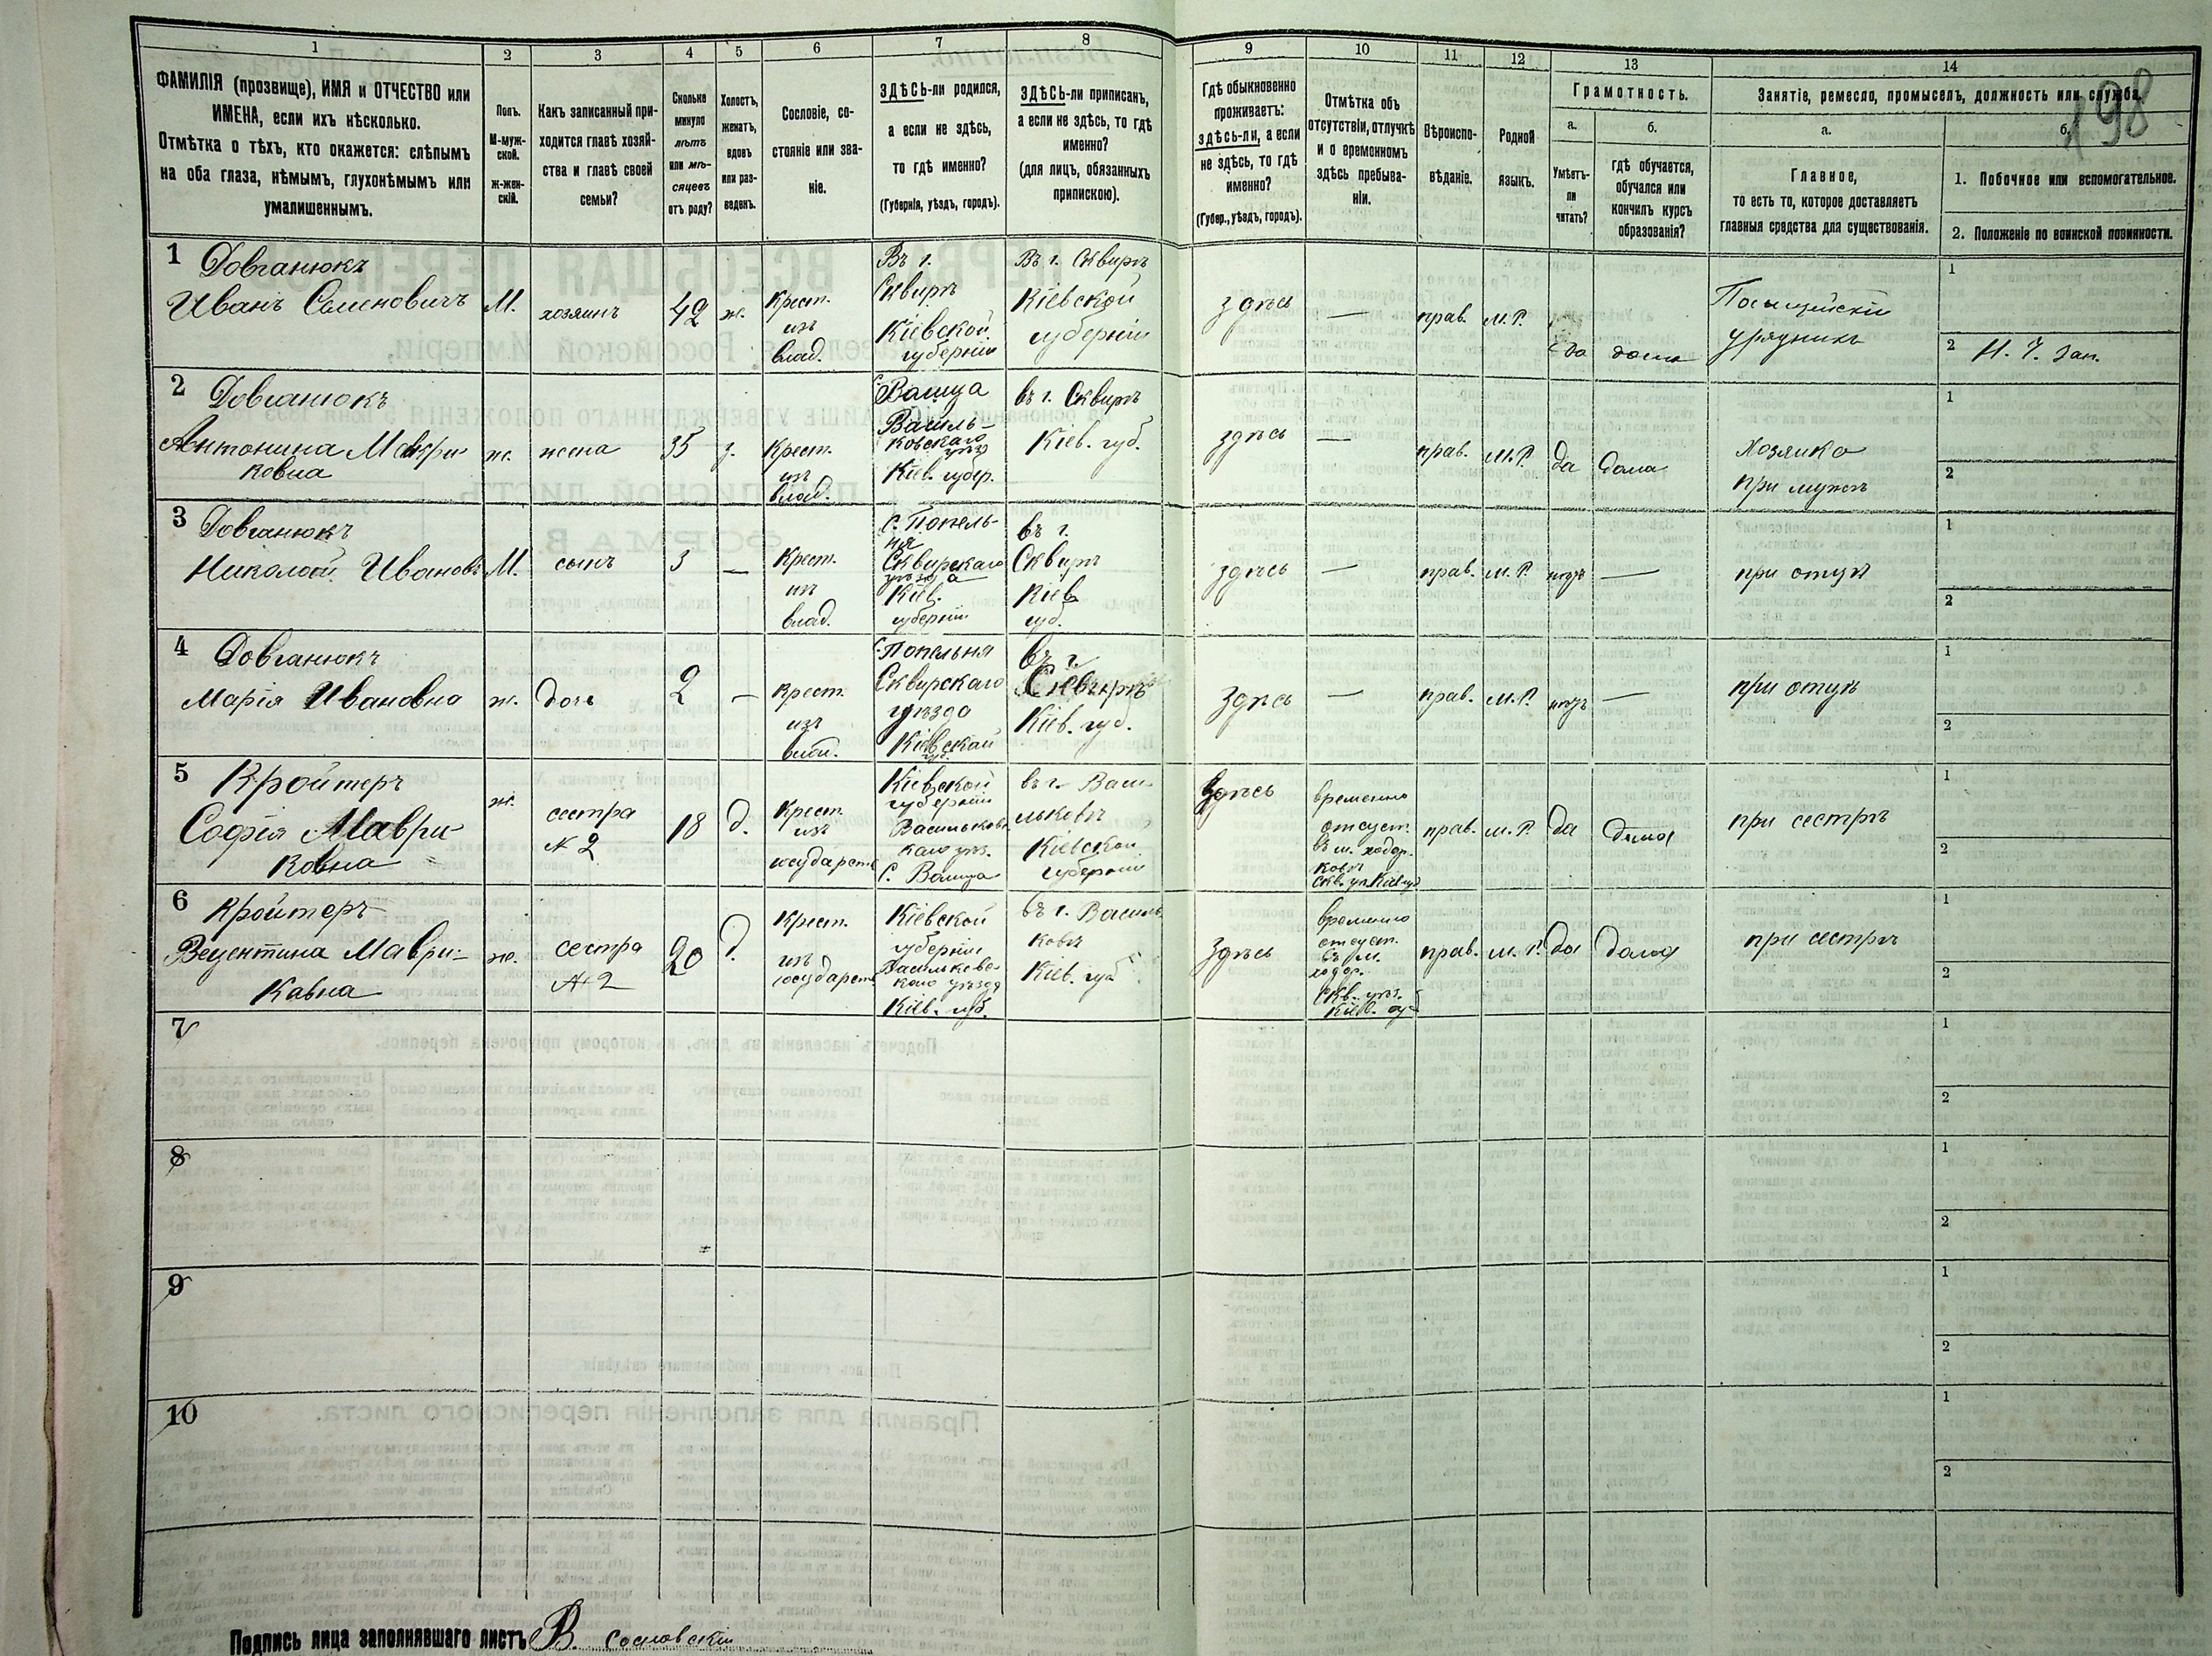 1 2 3 4 5 6 7 8 9 10 11 12 13 14
198
ФАМИЛІЯ (прозвище), ИМЯ и ОТЧЕСТВО или
ИМЕНА, если ихъ нѣсколько.
Отмѣтка о тѣхъ, кто окажется: слѣпымъ
на оба глаза, нѣмымъ, глухонѣмымъ или
умалишеннымъ.
Полъ.
М-муж-
ской.
ж-жен-
скій.
Какъ записанный при-
ходится главѣ хозяй-
ства и главѣ своей
семьи?
Сколько
минуло
лѣтъ
или мѣ-
сяцевъ
отъ роду?
Холостъ,
женатъ,
вдовъ
или раз-
веденъ.
Сословіе, со-
стояніе или зва-
ніе.
ЗДѢСЬ-ли родился,
а если не здѣсь,
то гдѣ именно?
(Губернія, уѣздъ, городъ).
ЗДѢСЬ-ли приписанъ,
а если не здѣсь, то гдѣ
именно?
(для лицъ, обязанныхъ
припискою).
Гдѣ обыкновенно
проживаетъ:
здѣсь-ли, а если
не здѣсь, то гдѣ
именно?
(Губер., уѣздъ, городъ).
Отмѣтка объ
отсутствіи, отлучкѣ
и о временномъ
здѣсь пребыва-
ніи.
Вѣроиспо-
вѣданіе.
Родной
языкъ.
Грамотность.
а.
Умѣетъ-
ли
читать?
б.
гдѣ обучается,
обучался или
кончилъ курсъ
образованія?
Занятіе, ремесло, промыселъ, должность или служба.
а.
Главное,
то есть то, которое доставляетъ
главныя средства для существованія.
б.
1. Побочное или вспомогательное.
2. Положеніе по воинской повинности.
1 Довганюкъ
Иванъ Семеновичъ
М.
хозяинъ
42
ж.
Крест.
изъ
влад.
Въ г.
Сквирѣ
Кіевской
губерніи
Въ г. Сквирѣ
Кіевской
губерніи
здѣсь
—
прав.
М.Р.
да
дома
Полицейскій
урядникъ
1
2 Н. Ч. Зап.
2 Довганюкъ
Антонина Маври-
ковна
ж.
жена
35
з.
Крест.
изъ
влад.
Василь-
ковскаго
Кіев. губер.
въ г. Сквирѣ
Кіев. губ.
здѣсь
—
прав.
М.Р.
да
дома
Хозяйка
при мужѣ
1
2
3 Довганюкъ
Николай Ивановъ
М.
сынъ
3
—
Крест.
изъ
влад.
с. Попель-
ня
Сквирскаго
уѣзда
Кіев.
губерніи
въ г.
Сквирѣ
Кіев
губ.
здѣсь
—
прав.
М.Р.
нѣтъ
—
при отцѣ
1
2
4 Довганюкъ
Марія Ивановна
ж.
дочь
2
—
крест.
изъ
влад.
с. Попельня
Сквирскаго
уѣзда
Кіевской
губ.
въ г.
Сквирѣ
Кіев. губ.
здѣсь
—
прав.
М.Р.
нѣтъ
—
при отцѣ
1
2
5 Кройтеръ
Софія Маври-
ковна
ж.
сестра
N 2
18
д.
Крест.
изъ
государств
Кіевской
губерніи
Васильковс
каго уѣз.
въ г. Васи
льковѣ
Кіевской
губерніи
Здѣсь
временно
отсуст.
въ м. ходор.
ковѣ
Скв. уѣ. Кіев губ
прав.
М.Р.
да
дома
при сестрѣ
1
2
6 Кройтеръ
Маври-
кавна
ж.
сестра
N 2
20
д.
Крест.
изъ
государств
Кіевской
губерніи
Васильковс-
каго уѣзда
Кіев. губ.
въ г. Василь
ковѣ
Кіев. губ
здѣсь
временно
отсуст.
въ м.
ходор.
Скв. уѣз.
Кіев. губ
прав.
М.Р.
да
дома
при сестрѣ
1
2
7
1
2
8
1
2
9
1
2
10
1
2
Подпись лица заполнявшаго листъ В. Сосновскій